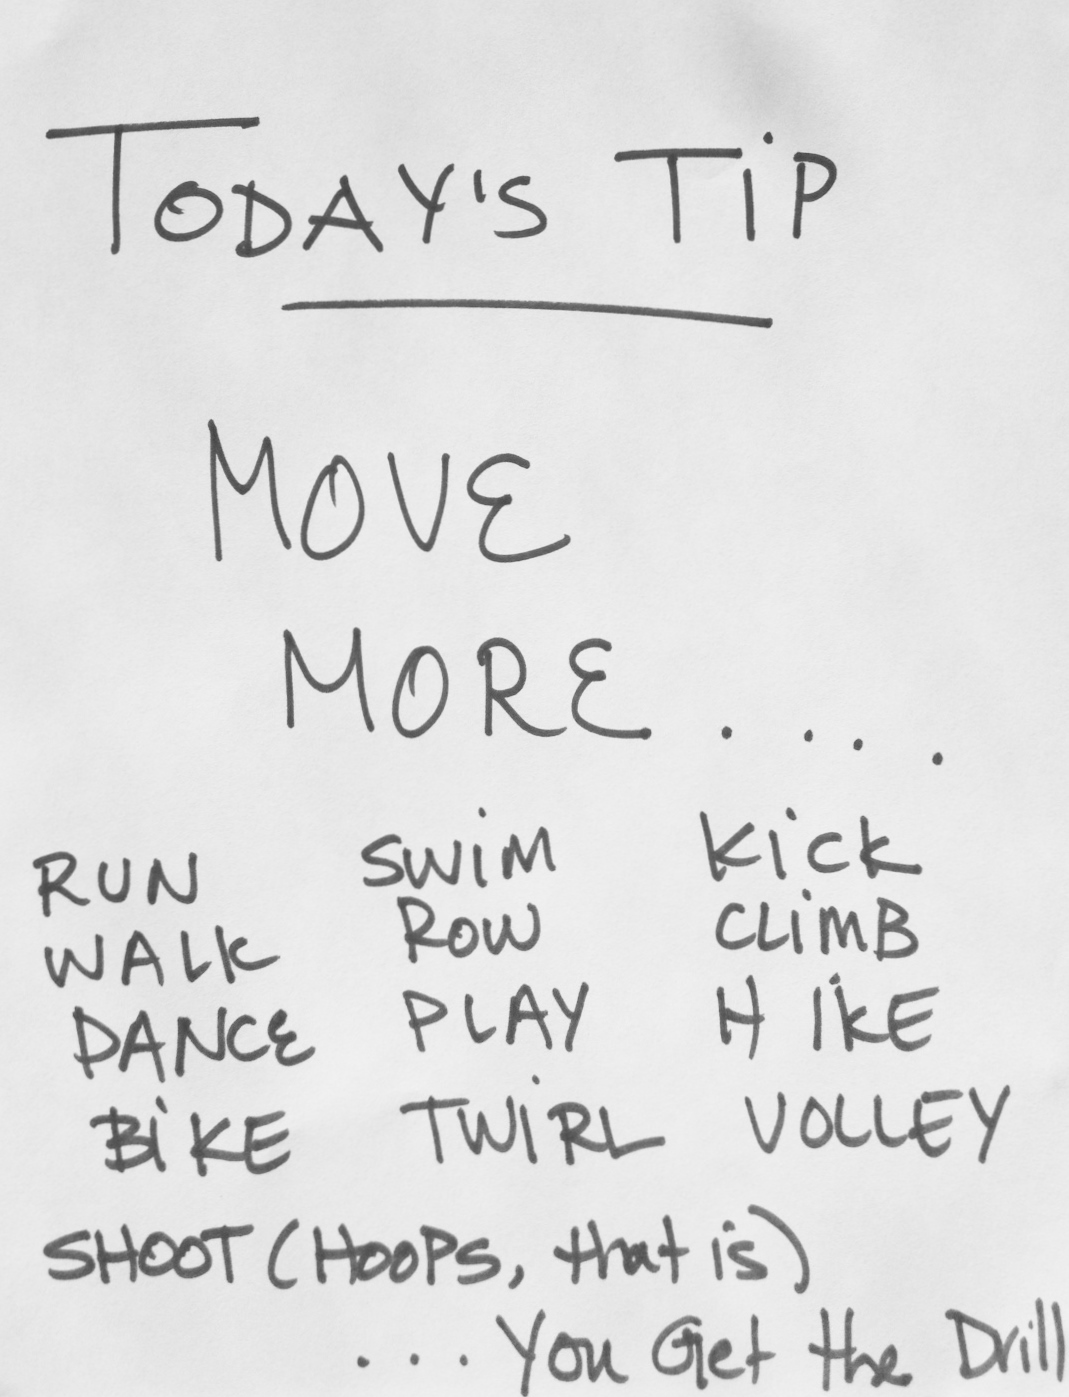 TODAY'S TiP
MOVE
MORE....
RUN SWiM KiCK
WALK ROW CLiMB
DANCE PLAY HIKE
BiKE TWiRL VOLLEY
SHOOT (HOOPS, that is)
...You Get the Drill